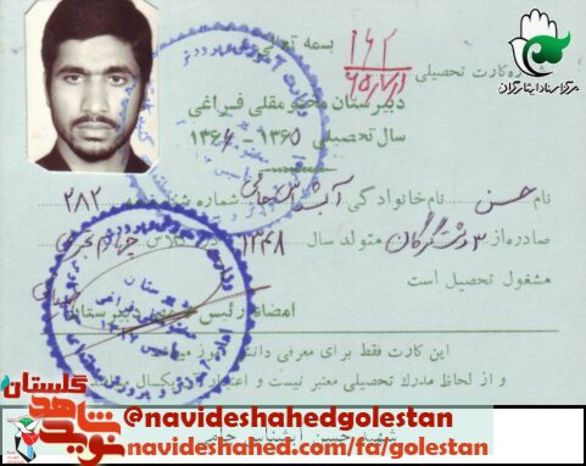 بسمه تعالی
شماره کارت تحصیلی ۱۶۲
دبیرستان مختومقلی فراغی
سال تحصیلی ۱۳۶۵ – ۱۳۶۴
نام حسن نام خانوادگی آبشناس جامی شماره شناسنامه ۲۸۲
صادره از ۳ دشت گرگان متولد سال ۱۳۴۸ در کلاس چهارم تجربی
مشغول تحصیل است
امضاء رئیس دبیرستان
این کارت فقط برای معرفی دانش آموز میباشد
و از لحاظ مدرک تحصیلی معتبر نیست و اعتبار آن یکسال میباشد
مرکز اسناد ایثارگران
نوید شاهد گلستان
@navideshahedgolestan
شهید حسن آبشناس جامی
navideshahed.com/fa/golestan